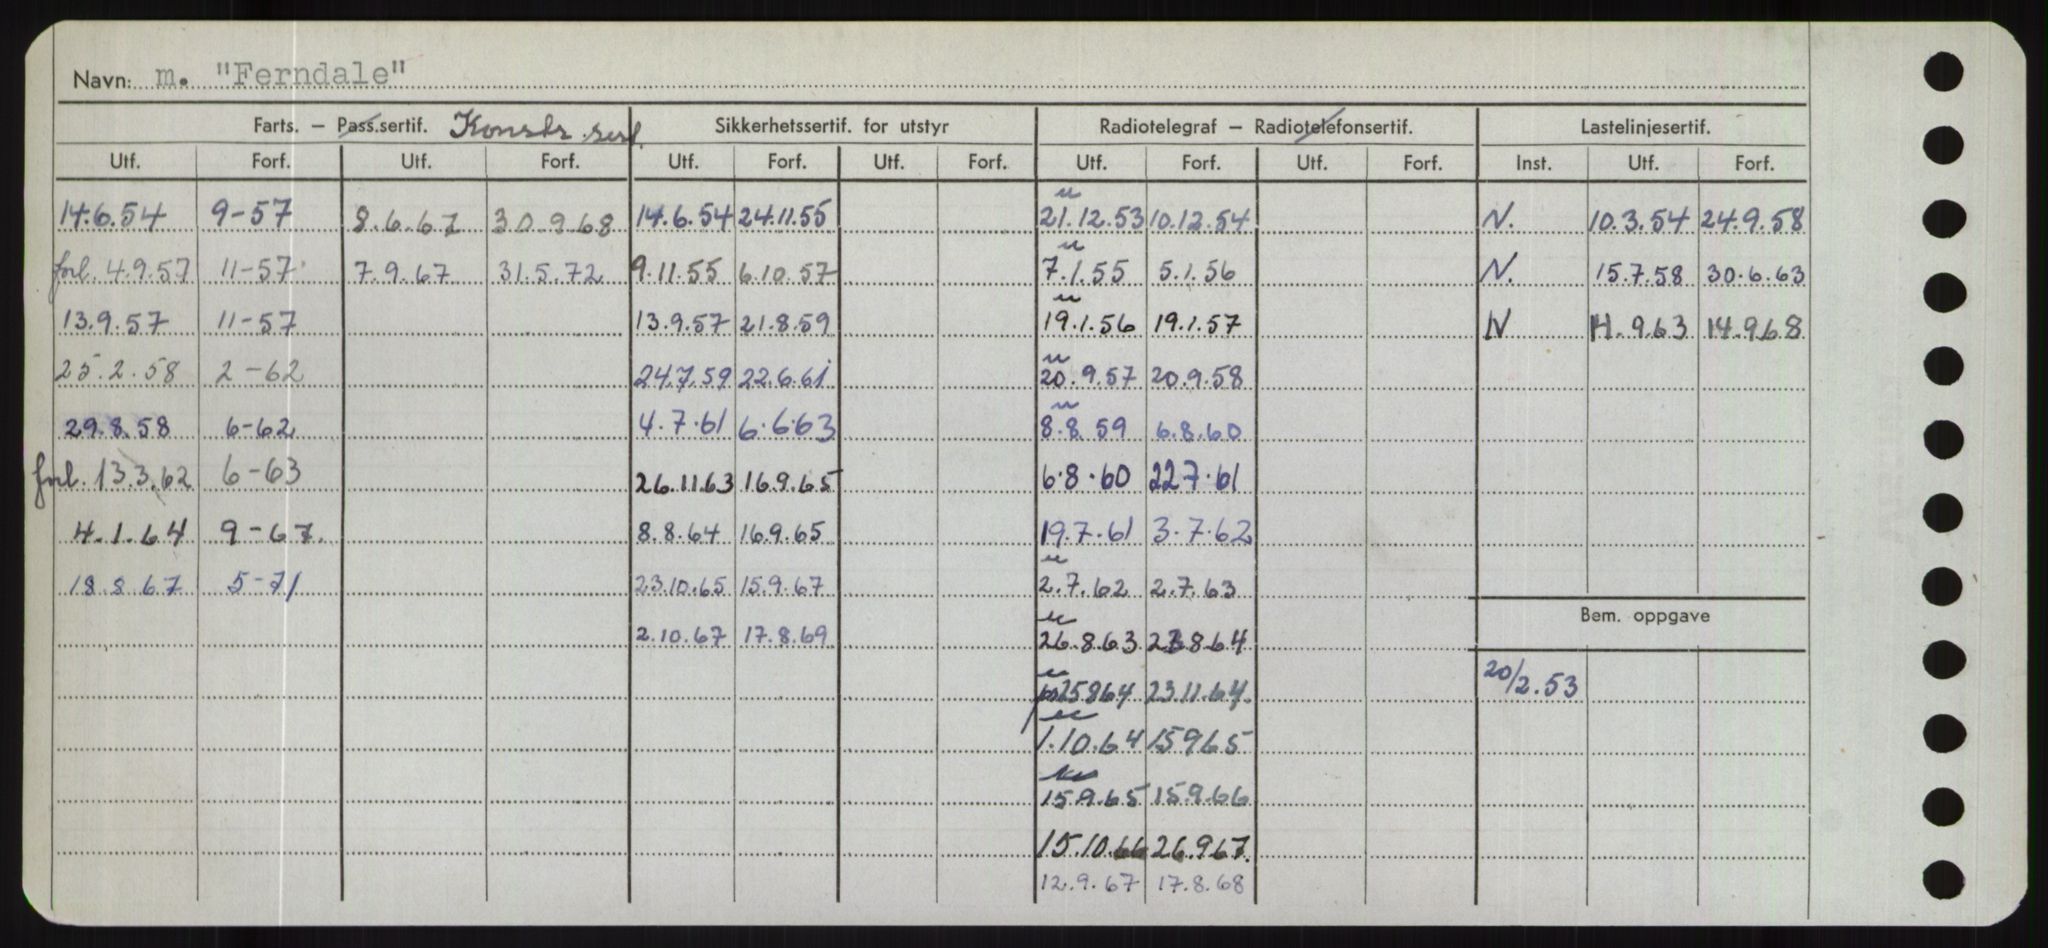 Navn: m. "Ferndale"
Farts. – Pass.sertif. Konstr. sert. Sikkerhetssertif. for utstyr Radiotelegraf – Radiotelefonsertif. Lastelinjesertif.
Utf. Forf. Utf. Forf. Utf. Forf. Utf. Forf. Utf. Forf. Utf. Forf. Inst. Utf. Forf.
14.6.54 9-57 8.6.67 30.9.68 14.6.54 24.11.55 u 21.12.53 10.12.54 N. 10.3.54 24.9.58
forl. 4.9.57 11-57 7.9.67 31.5.72 9.11.55 6.10.57 u 7.1.55 5.1.56 N. 15.7.58 30.6.63
13.9.57 11-57 13.9.57 21.8.59 u 19.1.56 19.1.57 N 14.9.63 14.9.68
25.2.58 2-62 24.7.59 22.6.61 u 20.9.57 20.9.58
29.8.58 6-62 4.7.61 6.6.63 u 8.8.59 6.8.60
forl. 13.3.62 6-63 26.11.63 16.9.65 6.8.60 22.7.61
4.1.64 9-67. 8.8.64 16.9.65 19.7.61 3.7.62
18.8.67 5-71 23.10.65 15.9.67 u 2.7.62 2.7.63
2.10.67 17.8.69 u 26.8.63 23.8.64
Bem. oppgave
u 25.8.64 23.11.64. 20/2.53
u 1.10.64 15.9.65
15.9.65 15.9.66
15.10.66 26.9.67.
12.9.67 17.8.68